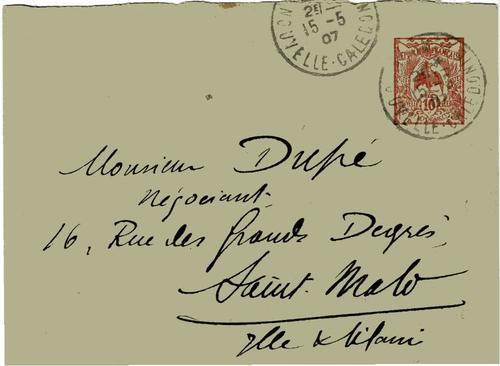 2E
15 -5
07
NOUVELLE-CALEDONI
10
NOUVELLE-CALEDONI
Monsieur Dupé
Négociant
16, Rue des Grands Degrés
Saint-Malo
Ille & Vilaine